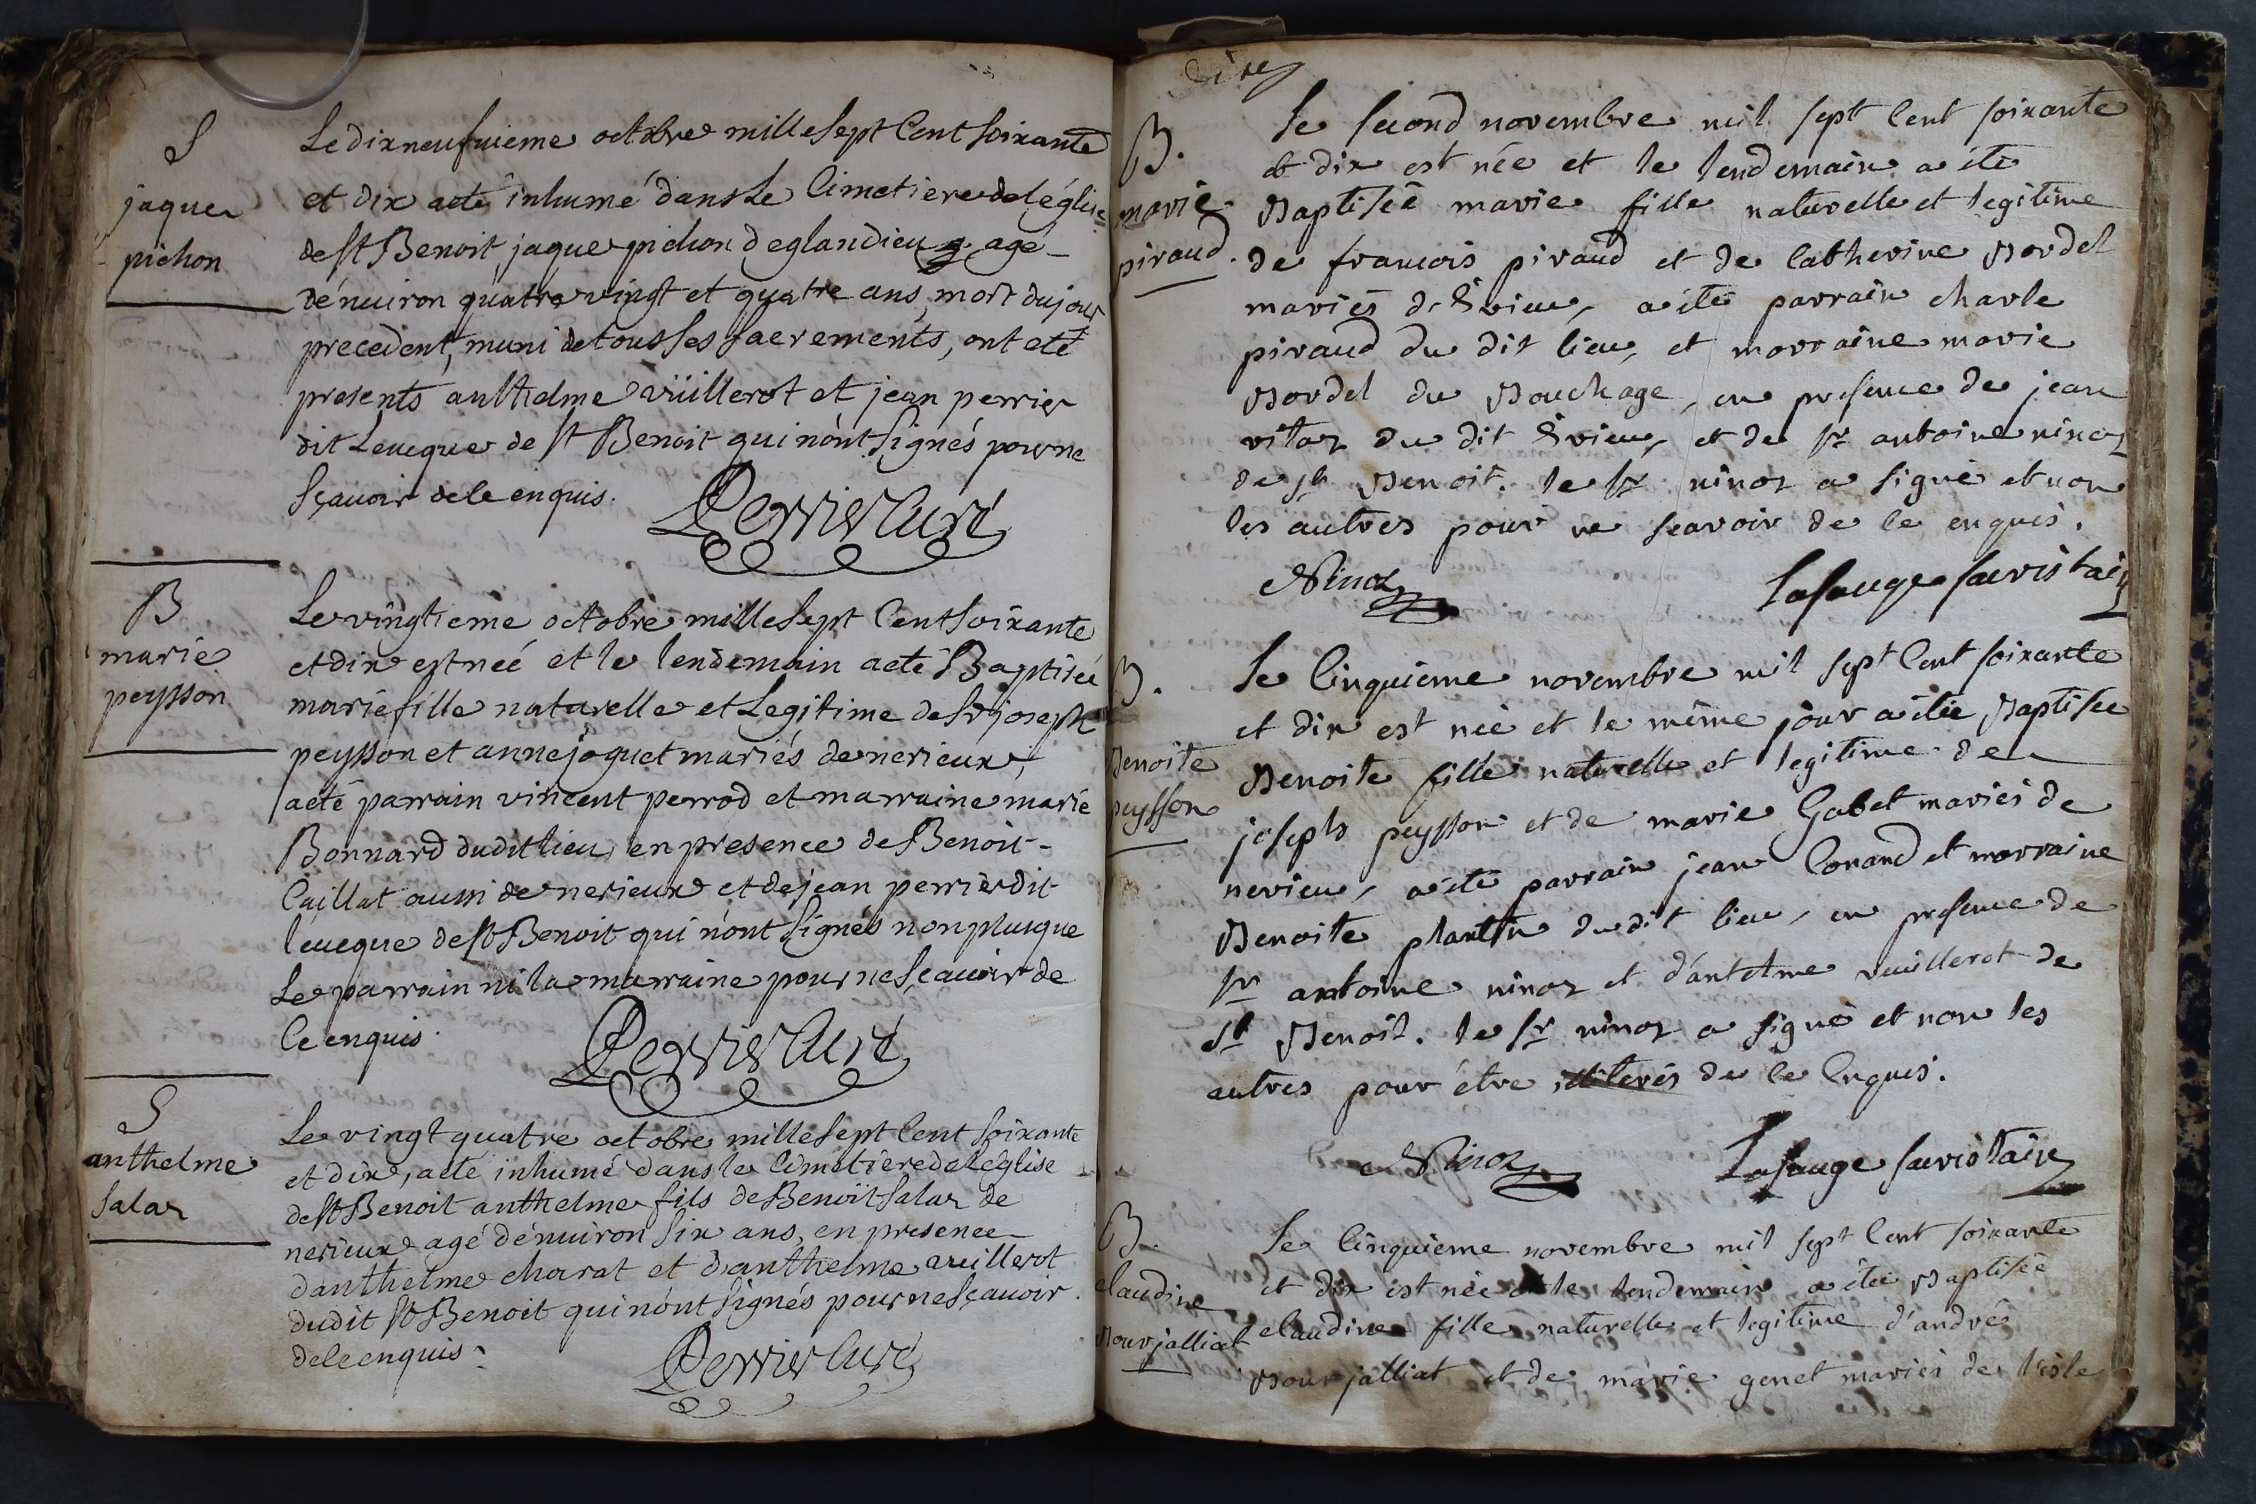 S
jaque
pichon
Le dixneufuieme octobre mille sept Cent soixante
et dix a eté inhumé dans le Cimetiere de l'églis
de st Benoit jaque pichon de glandieu agé
d'énuiron quatre vingt et quatre ans, mort du jour
precedent, muni de tous ses sacrements, ont eté
presents anthelme vüillerot et jean perrier
dit Leueque de st Benoit qui n'ont signés pour ne
sçauoir de ce enquis.
Perrier Curé
B
marie
peysson
Le vingtieme octobre mille sept Cent soixante
et dix est neé et le lendemain a eté Baptisée
marie fille naturelle et Legitime de sr joseph
peysson et anne joguet mariés de nerieux,
a eté parrain vincent perrod et marraine marie
Bonnard dudit lieu, en presence de Benoit
Caillat aussi de nerieux et de jean perrier dit
leueque de st Benoit qui n'ont signés non plus que
Le parrain ni la marraine pour ne sçauoir de
Ce enquis.
Perrier Curé
S
anthelme
salar
Le vingt quatre octobre mille sept Cent soixante
et dix, a eté inhumé dans le Cimetiere de l'église
de st Benoit anthelme fils de Benoit salar de
nerieux agé d'énuiron six ans, en presence
d'anthelme charat et d'anthelme vuillerot
dudit st Benoit qui n'ont signés pour ne sçauoir
de ce enquis.
Perrier Curé
B.
marie
piraud.
Le second novembre mil sept Cent soixante
et dix est née et le lendemain a été
Baptisée marie fille naturelle et legitime
de francois piraud et de Catherine Bordel
mariés d'Evieu, a été parrain charle
piraud du dit lieu, et marraine marie
Bordel du Bouchage, en presence de jean
vitoz du dit Evieu, et de sr antoine ninoz
de st Benoit. le sr ninoz a signé et non
les autres pour ne scavoir de ce enquis.
Ninoz
Lasauge sacristain
B.
Benoite
peysson
Le Cinquieme novembre mil sept Cent soixante
et dix est née et le même jour a étée Baptisée
Benoite fille naturelle et legitime de
joseph peysson et de marie Gabet mariés de
nerieu, a été parrain jean Conand et marraine
Benoite plantin du dit lieu, en presence de
sr antoine ninoz et d'antelme vuillerot de
st Benoit. le sr ninoz a signé et non les
autres pour être illiterés de ce Enquis.
Ninoz
Lasauge sacristain
B.
claudine
Bourjalliat
Le Cinquieme novembre mil sept Cent soixante
et dix est née et le lendemain a étée Baptisée
claudine fille naturelle et legitime d'andrés
Bourjalliat et de marie genet mariés de l'isle